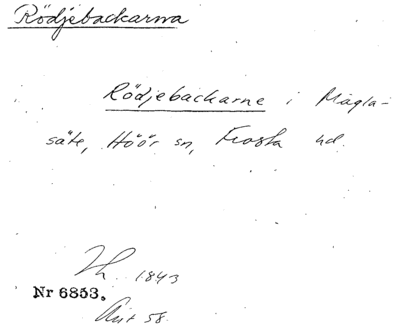 Rödjebackarna
Rödjebackarne i Magla-
säte, Höör sn, Frosta hd.
1843
Nr 6853.
58